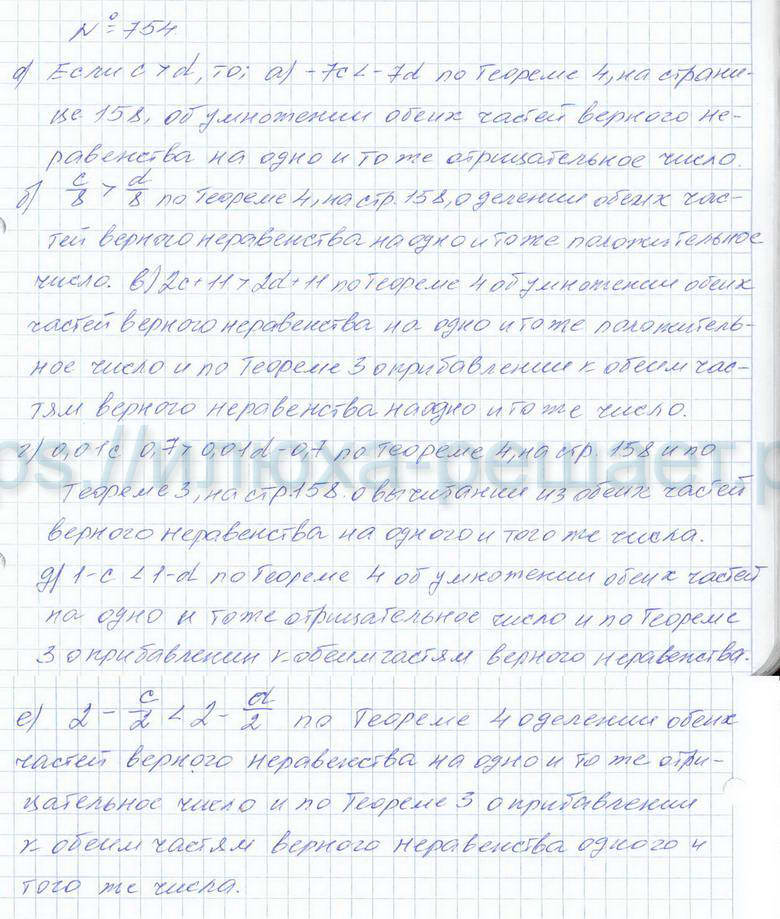 № 754
а) Если c > d, то: а) -7c < -7d по Теореме 4, на страни-
це 158, об умножении обеих частей верного не-
равенства на одно и то же отрицательное число.
б) c/8 > d/8 по Теореме 4, на стр. 158, о делении обеих час-
тей верного неравенства на одно и то же положительное
число. в) 2c+11 > 2d+11 по Теореме 4 об умножении обеих
частей верного неравенства на одно и то же положитель-
ное число и по Теореме 3 о прибавлении к обеим час-
тям верного неравенства на одно и то же число.
г) 0,01c 0,7 > 0,01d-0,7 по Теореме 4, на стр. 158 и по
Теореме 3, на стр. 158. о вычитании из обеих частей
верного неравенства на одного и того же числа.
д) 1-c < 1-d по Теореме 4 об умножении обеих частей
на одно и то же отрицательное число и по Теореме
3 о прибавлении к обеим частям верного неравенства.
е) 2 - c/2 < 2 - d/2 по Теореме 4 о делении обеих
частей верного неравенства на одно и то же отри-
цательное число и по Теореме 3 о прибавлении
к обеим частям верного неравенства одного и
того же числа.
ps://илюха-решает.р